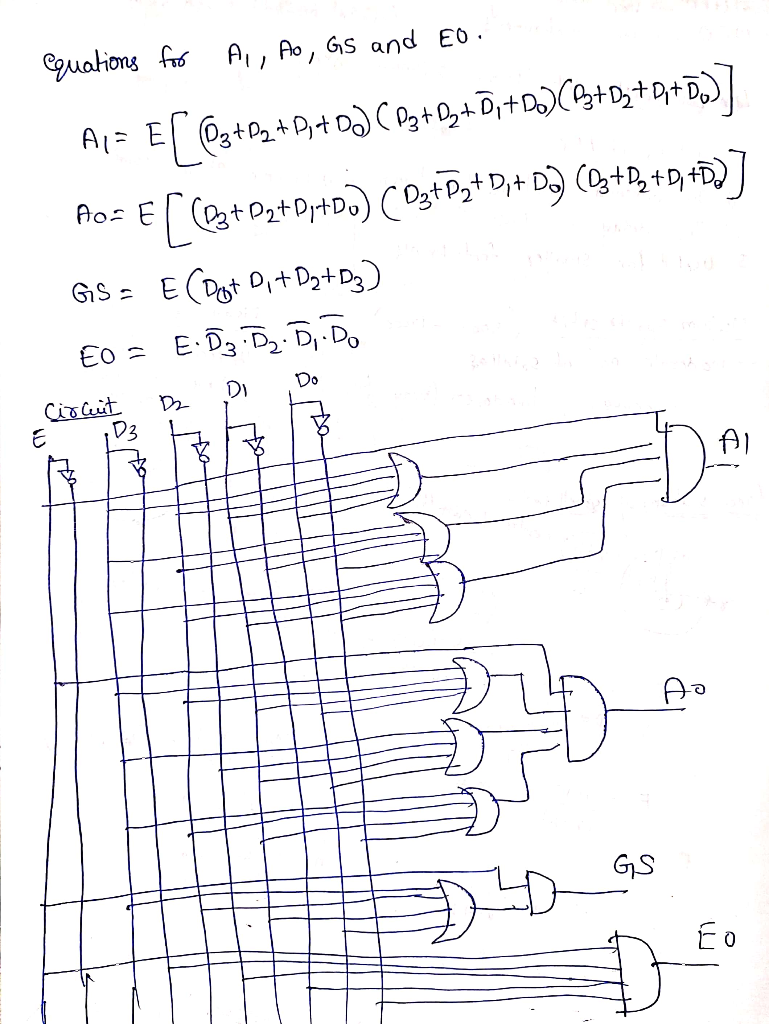 Equations for A1, A0, GS and EO.
A1 = E[(D3+D2+D1+D0)(D3+D2+D̅1+D0)(D3+D2+D1+D̅0)]
A0 = E[(D3+D2+D1+D0)(D3+D̅2+D1+D0)(D3+D2+D1+D̅0)]
GS = E(D0+D1+D2+D3)
EO = E.D̅3.D̅2.D̅1.D̅0
Circuit
E D3 D2 D1 D0
A1
A0
GS
EO